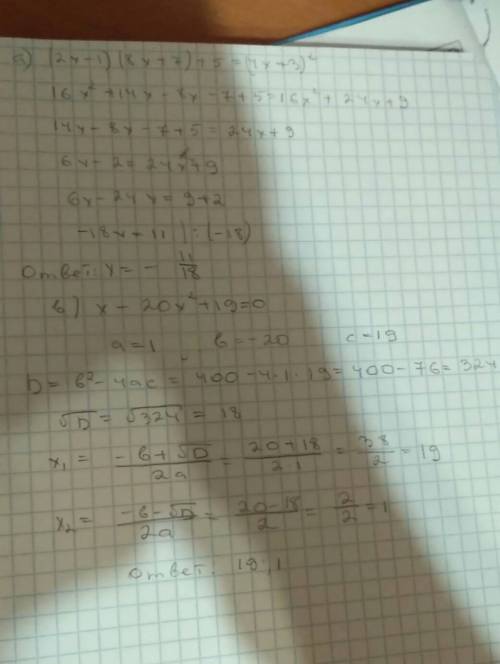 а) (2x-1)(8x+7)+5=(4x+3)²
16x²+14x-8x-7+5=16x²+24x+9
14x-8x-7+5=24x+9
6x-2=24x+9
6x-24x=9+2
-18x=11 | :(-18)
Ответ: x=-11/18
в) x-20x²+19=0
a=1 b=-20 c=19
D=b²-4ac=400-4·1·19=400-76=324
√D=√324=18
x₁=(-b+√D)/2a=(20+18)/2·1=38/2=19
x₂=(-b-√D)/2a=(20-18)/2=2/2=1
Ответ. 19;1